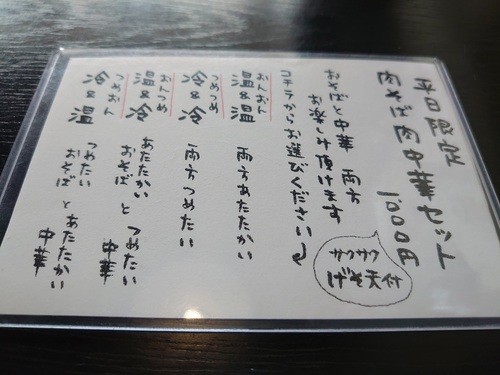 平日限定
肉そば肉中華セット
1000円
サクサク
げそ天付
おそばと中華 両方
お楽しみ頂けます
コチラからお選びください
おんおん
温&温 両方あたたかい
つめつめ
冷&冷 両方つめたい
おんつめ
温&冷 あたたかい おそば と つめたい 中華
つめおん
冷&温 つめたい おそば と あたたかい 中華